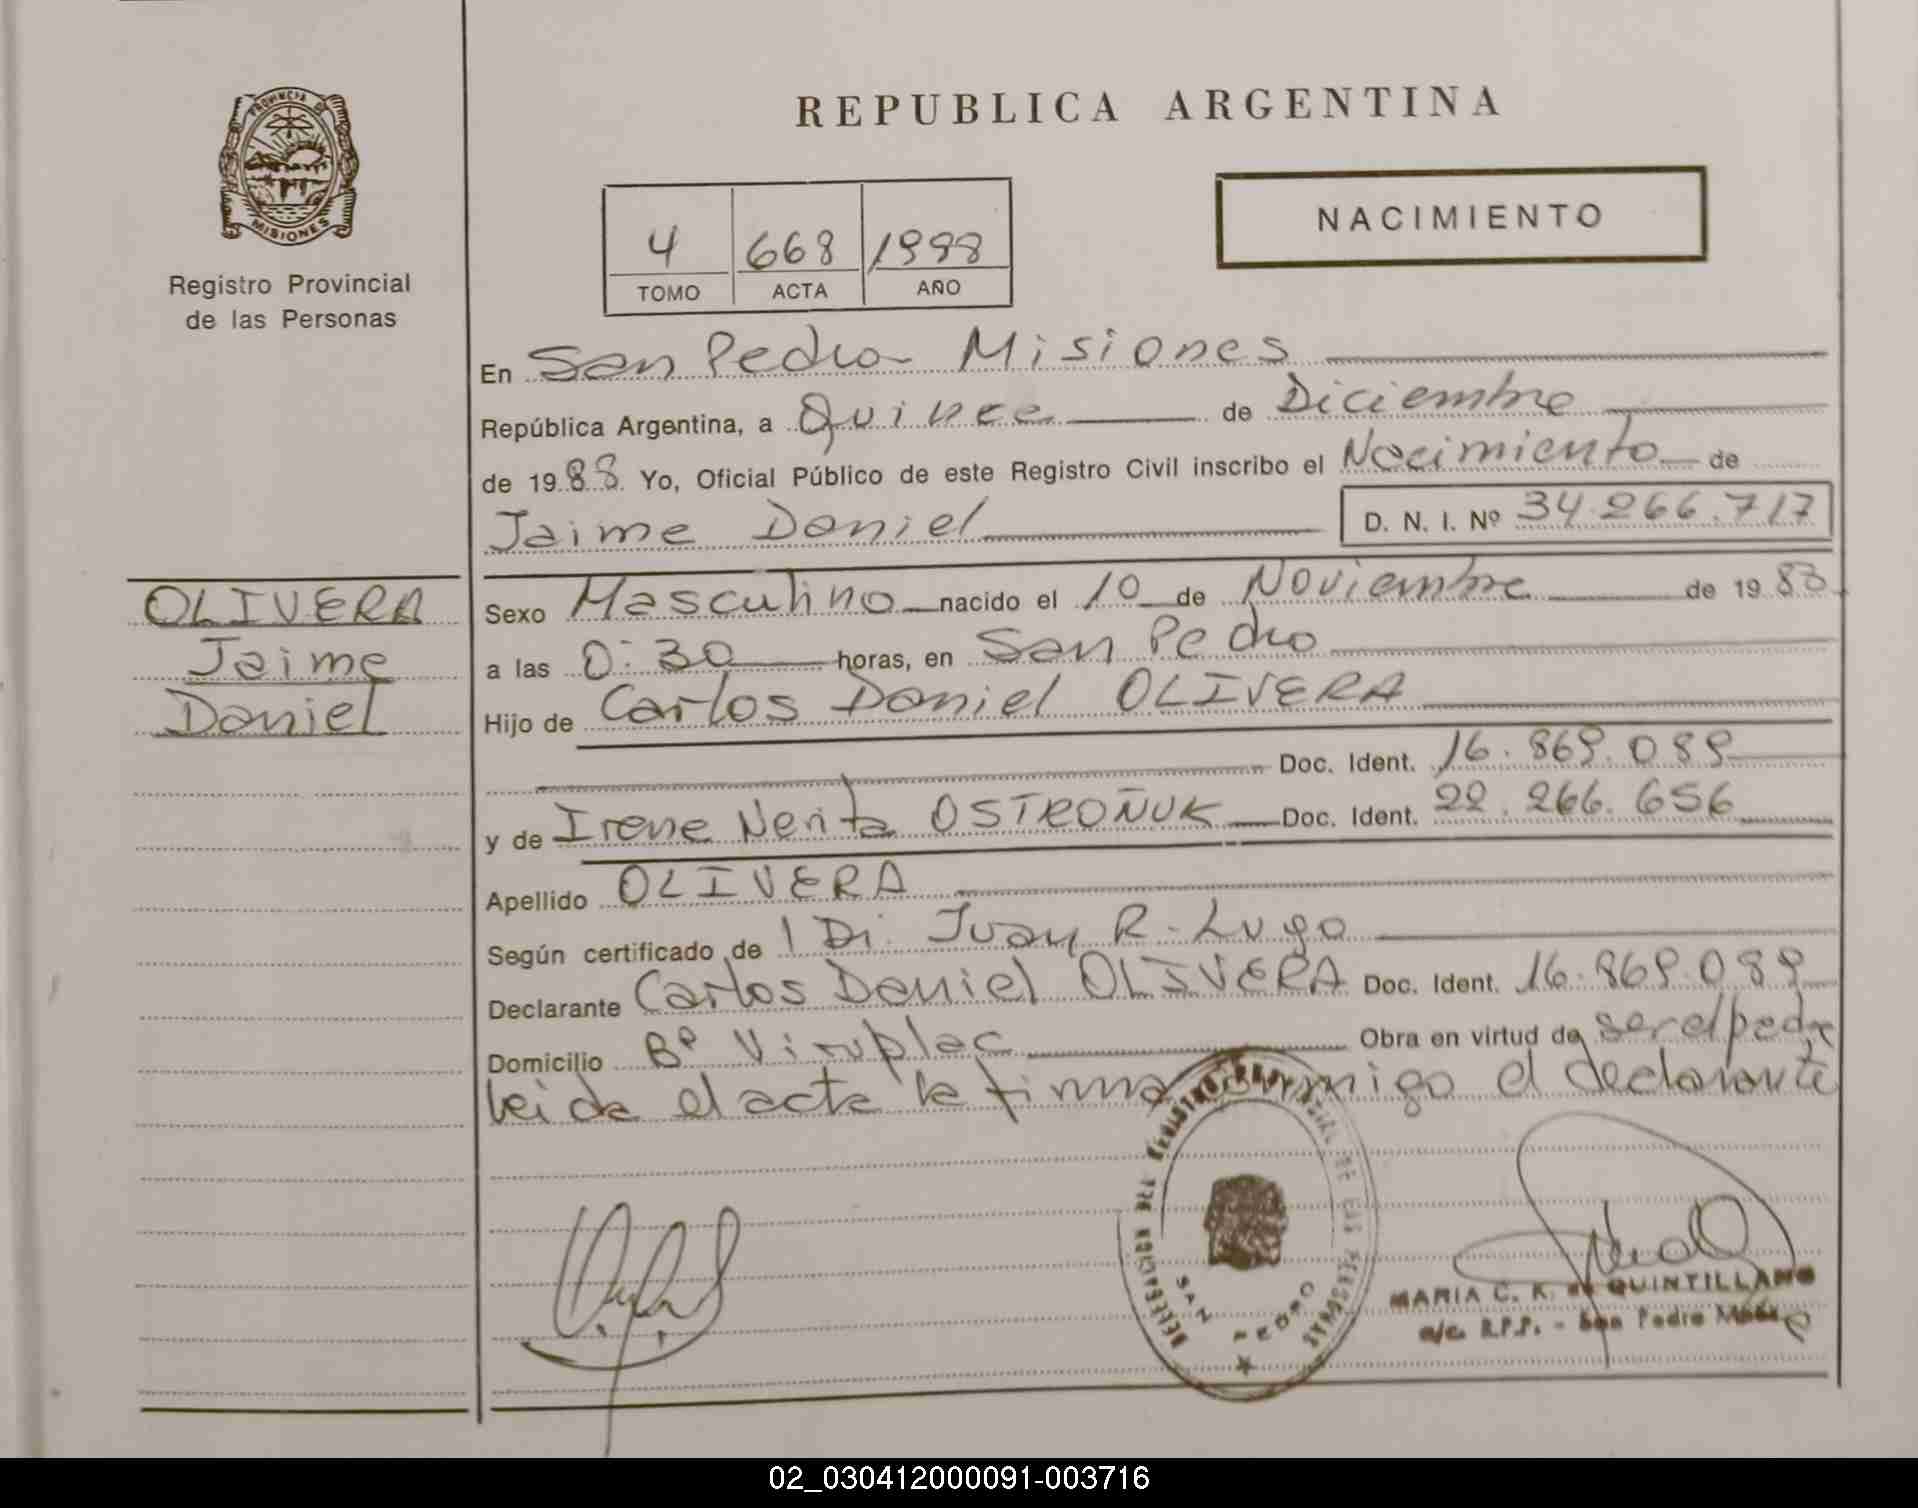 REPUBLICA ARGENTINA
PROVINCIA DE
MISIONES
Registro Provincial
de las Personas
NACIMIENTO
4 668 1988
TOMO ACTA AÑO
En San Pedro Misiones
República Argentina, a Quince de Diciembre
de 1988 Yo, Oficial Público de este Registro Civil inscribo el Nacimiento de
Jaime Daniel D. N. I. Nº 34.266.717
OLIVERA
Jaime
Daniel
Sexo Masculino nacido el 10 de Noviembre de 1988
a las 0:30 horas, en San Pedro
Hijo de Carlos Daniel OLIVERA
Doc. Ident. 16.869.089
y de Irene Nerita OSTROÑUK Doc. Ident. 22.266.656
Apellido OLIVERA
Según certificado de Juan R. Lugo
Declarante Carlos Daniel OLIVERA Doc. Ident. 16.869.089
Domicilio Bº Obra en virtud de ser el padre
leida el acta la firma conmigo el declarante
DELEGACION DEL REGISTRO PROVINCIAL DE LAS PERSONAS
SAN PEDRO
MARIA C. K. de QUINTILLANO
a/c. R.P.P. - San Pedro Mnes.
02_030412000091-003716